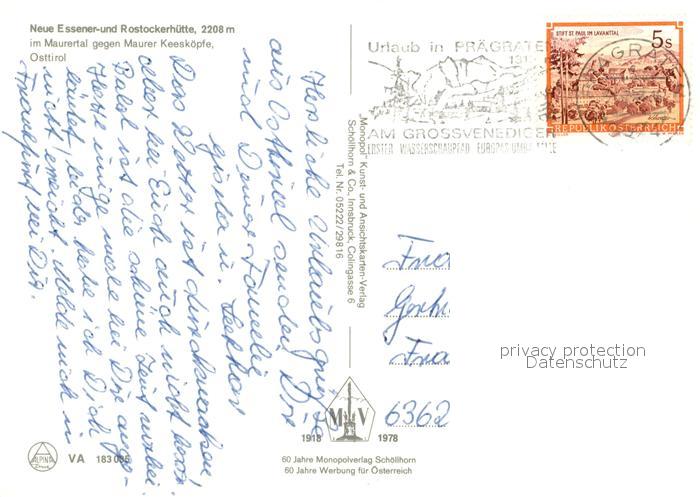 Neue Essener-und Rostockerhütte, 2208 m
im Maurertal gegen Maurer Keesköpfe,
Osttirol
Urlaub in PRÄGRATEN
AM GROSSVENEDIGER
ERSTER WASSERSCHAUPFAD EUROPAS
STIFT ST. PAUL IM LAVANTTAL
5 S
REPUBLIK ÖSTERREICH
Herzliche Urlaubsgrüße
aus Osttirol senden Dir
und Deiner Familie
Gisela u.
Das Wetter ist durchwachsen!
aber bei Euch auch nicht
Bald ist die schöne Zeit vorbei.
Hatte einige male bei Dir
leider habe ich Dich
nicht erreicht. Melde mich in
bei Dir.
„Monopol" Kunst- und Ansichtskarten-Verlag
Schöllhorn & Co., Innsbruck, Colingasse 6
Tel. Nr. 05222/29816
Fra
Gerh
Fra
6362
privacy protection
Datenschutz
MV
1918 1978
60 Jahre Monopolverlag Schöllhorn
60 Jahre Werbung für Österreich
ALPINA
Druck
VA 183 086